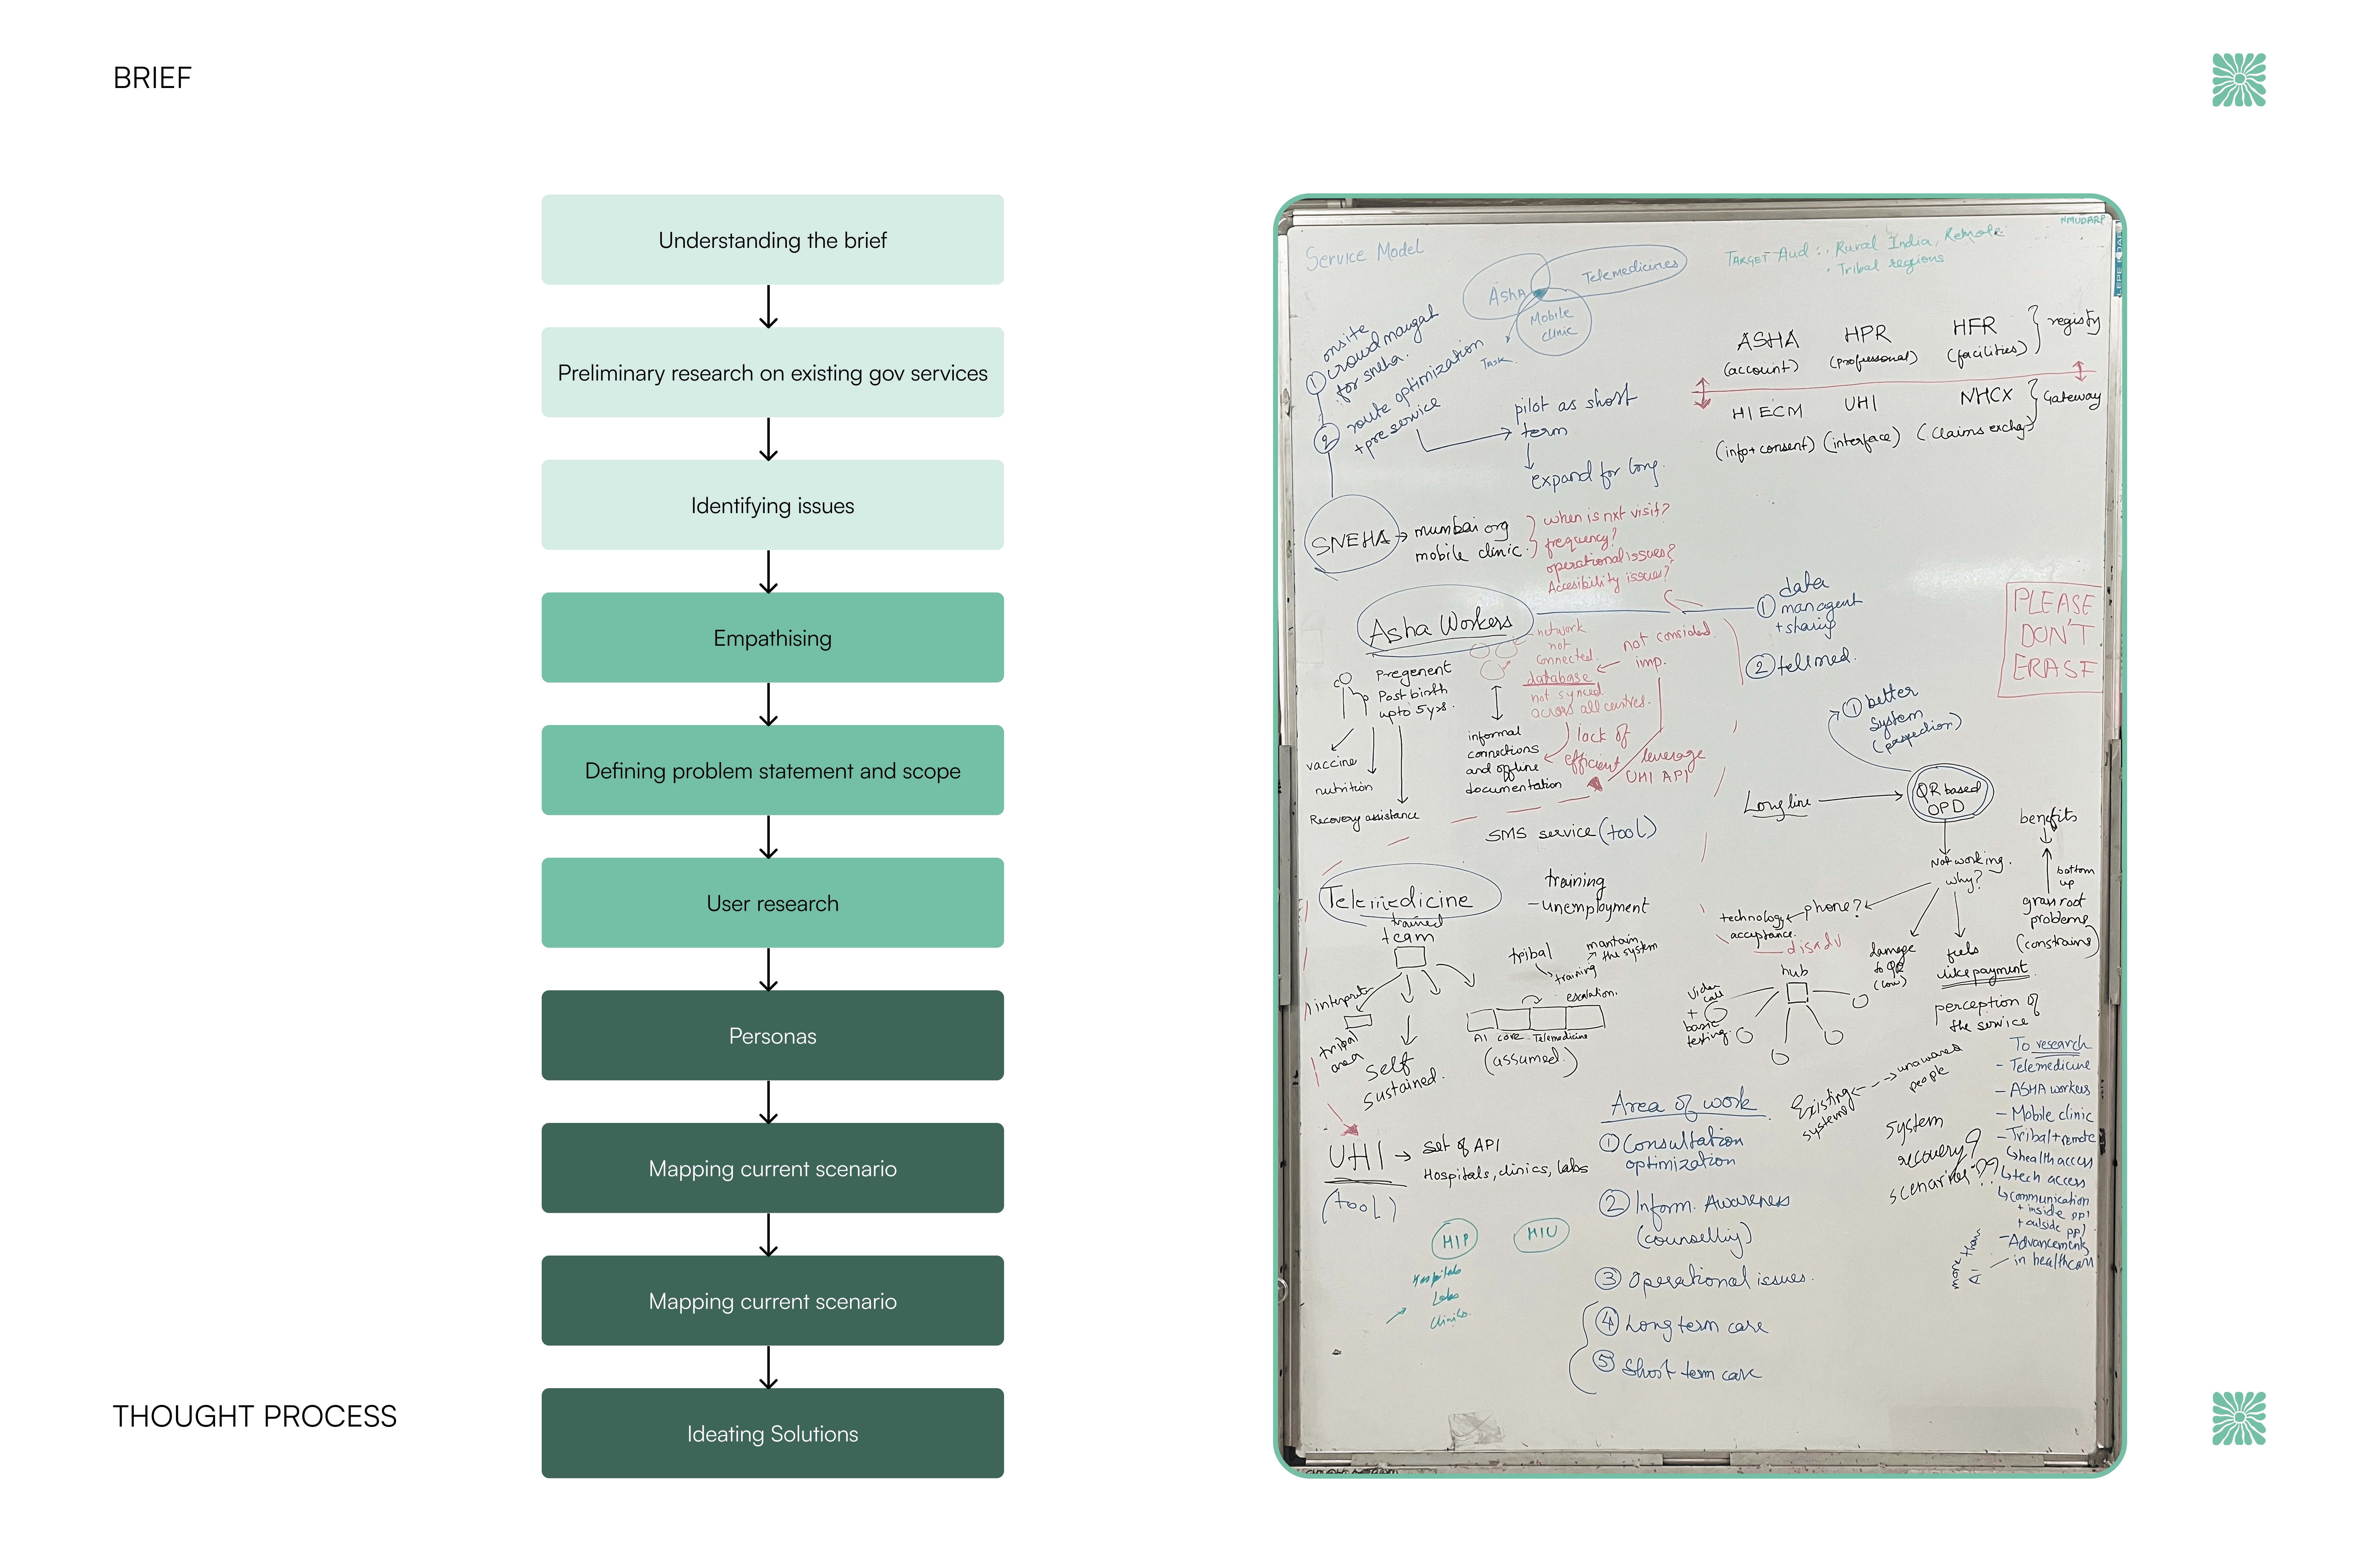 BRIEF
Understanding the brief
Preliminary research on existing gov services
Identifying issues
Empathising
Defining problem statement and scope
User research
Personas
Mapping current scenario
Mapping current scenario
Ideating Solutions
THOUGHT PROCESS
Service Model
Asha
Telemedicines
Mobile
clinic
Task
TARGET Aud :. Rural India, Remote
. Tribal regions
① onsite
for sneha.
② route optimization
+pre service
pilot as short
term
expand for long.
ASHA
(account)
HPR
(professional)
HFR
(facilities)
registy
HIECM
(info+consent)
UHI
(interface)
NHCX
Gateway
SNEHA → mumbai org
mobile clinic.
when is nxt visit?
frequency?
operational issues?
Accesibility issues?
Asha Workers
① data
managent
+ sharing
② telemed.
PLEASE
DON'T
ERASE
network
not
connected.
database
not synced
across all centres.
not considerd
imp.
Pregenent
Post birth
upto 5 yrs.
vaccine
nutrition
Recovery assistance
informal
connections
and offline
documentation
lack of
efficient
leverage
UHI API
SMS service (tool)
① better
system
Long line
QR based
OPD
Not working.
why?
phone?
technology
acceptance.
disadv
damage
to QR
(low)
feels
like payment
perception of
the service
benefits
bottom
up
problems
Telemedicine
trained
team
training
- unemployment
interpret
tribal
area
self
sustained.
tribal
training
mantain
the system
escalation.
AI
core
Telemedicine
(assumed.)
hub
Video
call
+
basic
testing.
Existing
systems
unawares
people
system
recovery?
To research
- Telemedicine
- ASHA workers
- Mobile clinic
- Tribal+remote
health access
tech access
communication
+ inside ppl
+ outside ppl.
- Advancements
in healthcare
more than
AI
UHI → set of API
Hospitals, clinics, labs
(tool)
HIP
HIU
Hospitals
Labs
Clinics.
Area of work
① Consultation
optimization
② Inform. Awareness
③ Operational issues.
④ Long term care
⑤ Short term care